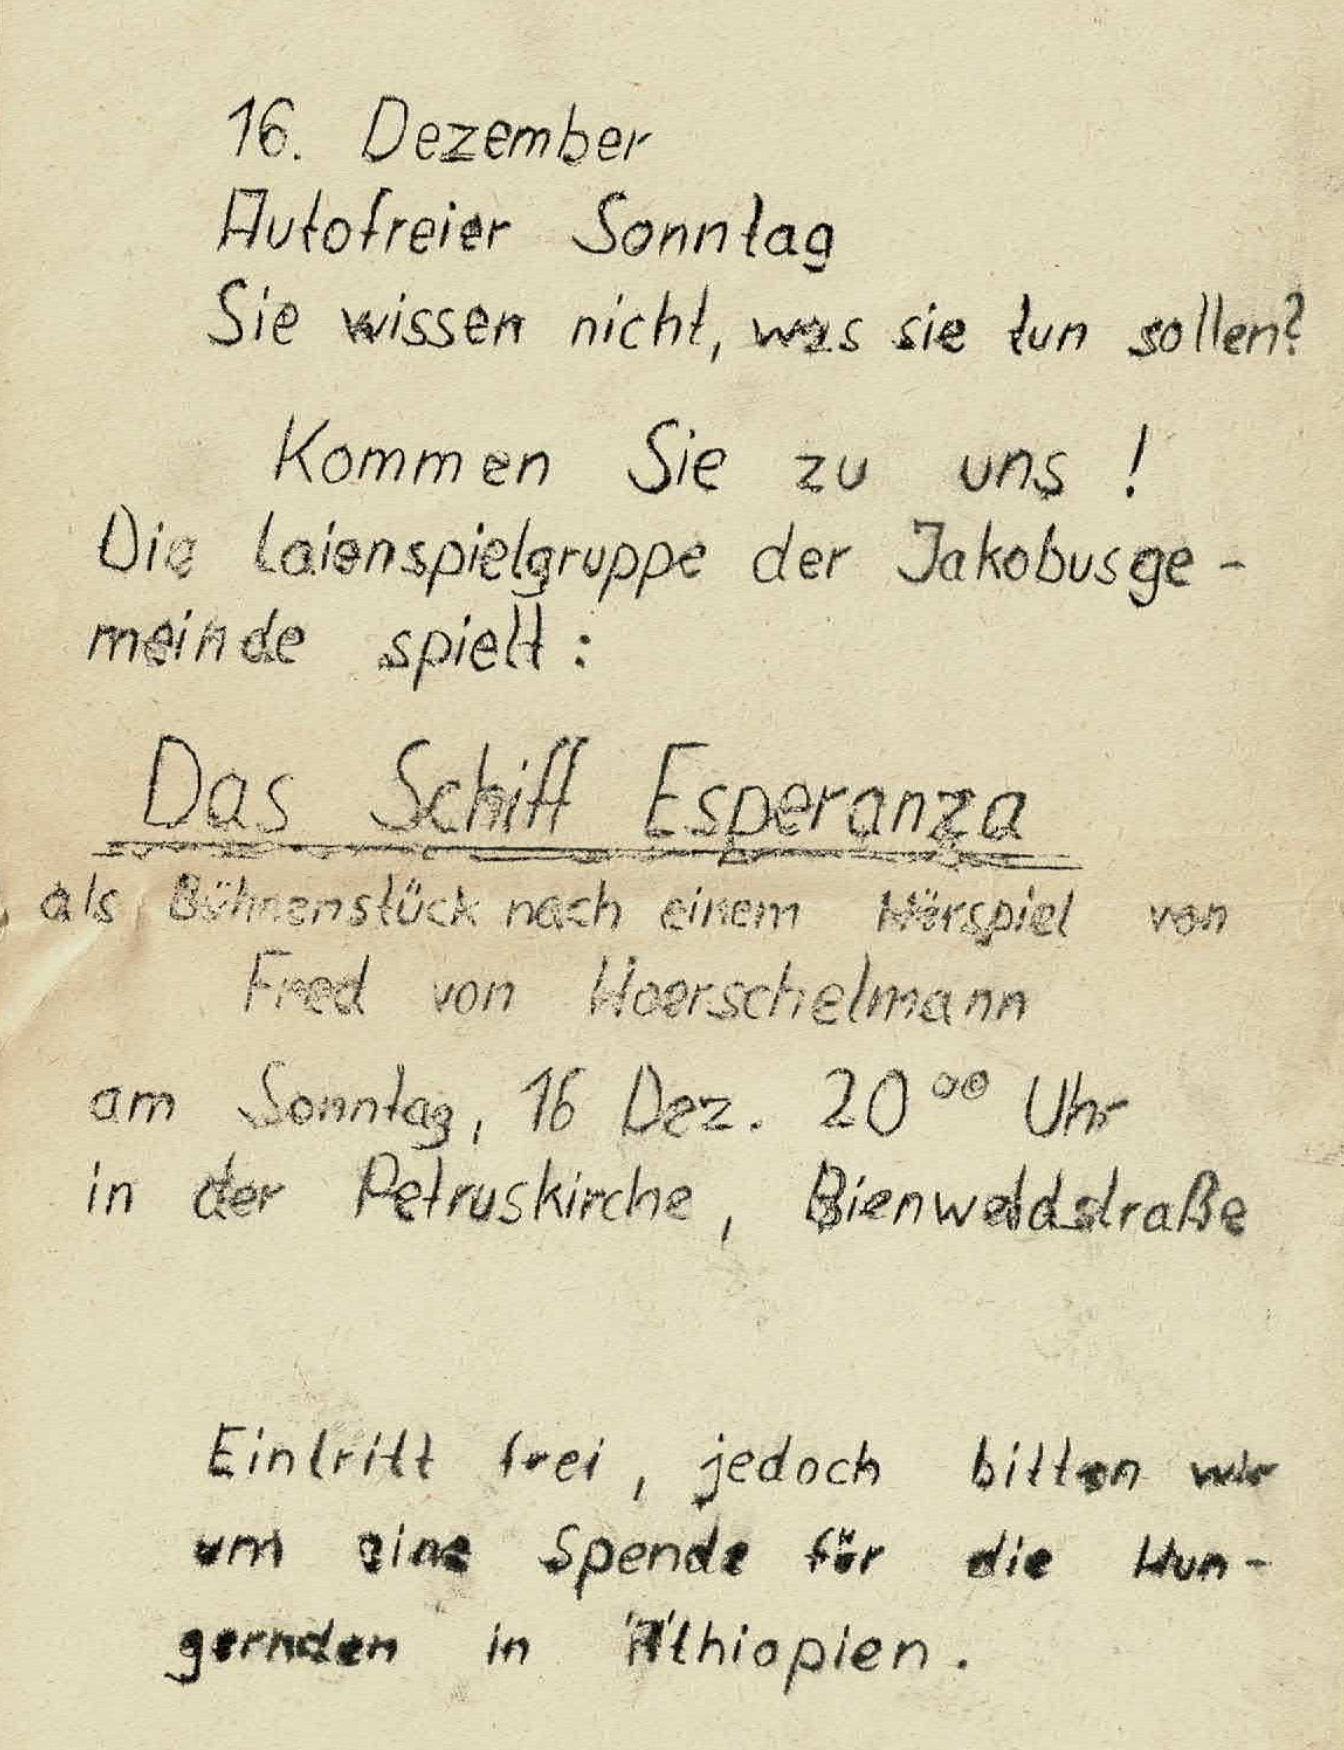 16. Dezember
Autofreier Sonntag
Sie wissen nicht, was sie tun sollen?
Kommen Sie zu uns !
Die Laienspielgruppe der Jakobusge-
meinde spielt :
Das Schiff Esperanza
als Bühnenstück nach einem Hörspiel von
Fred von Hoerschelmann
am Sonntag, 16 Dez. 20⁰⁰ Uhr
in der Petruskirche, Bienwaldstraße
Eintritt frei, jedoch bitten wir
um eine Spende für die Hun-
gernden in Äthiopien.